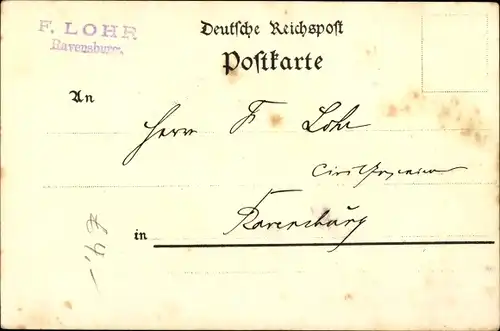 F. LOHR
Ravensburg.
Deutsche Reichspost
Postkarte
An
Herrn F Lohr
Civilingenieur
in Ravensburg
€ 4,-